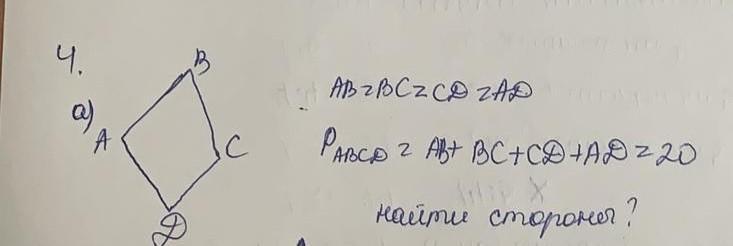 4.
а)
B
A
C
D
AB=BC=CD=AD
P_ABCD = AB+ BC+CD+AD=20
найти стороны?